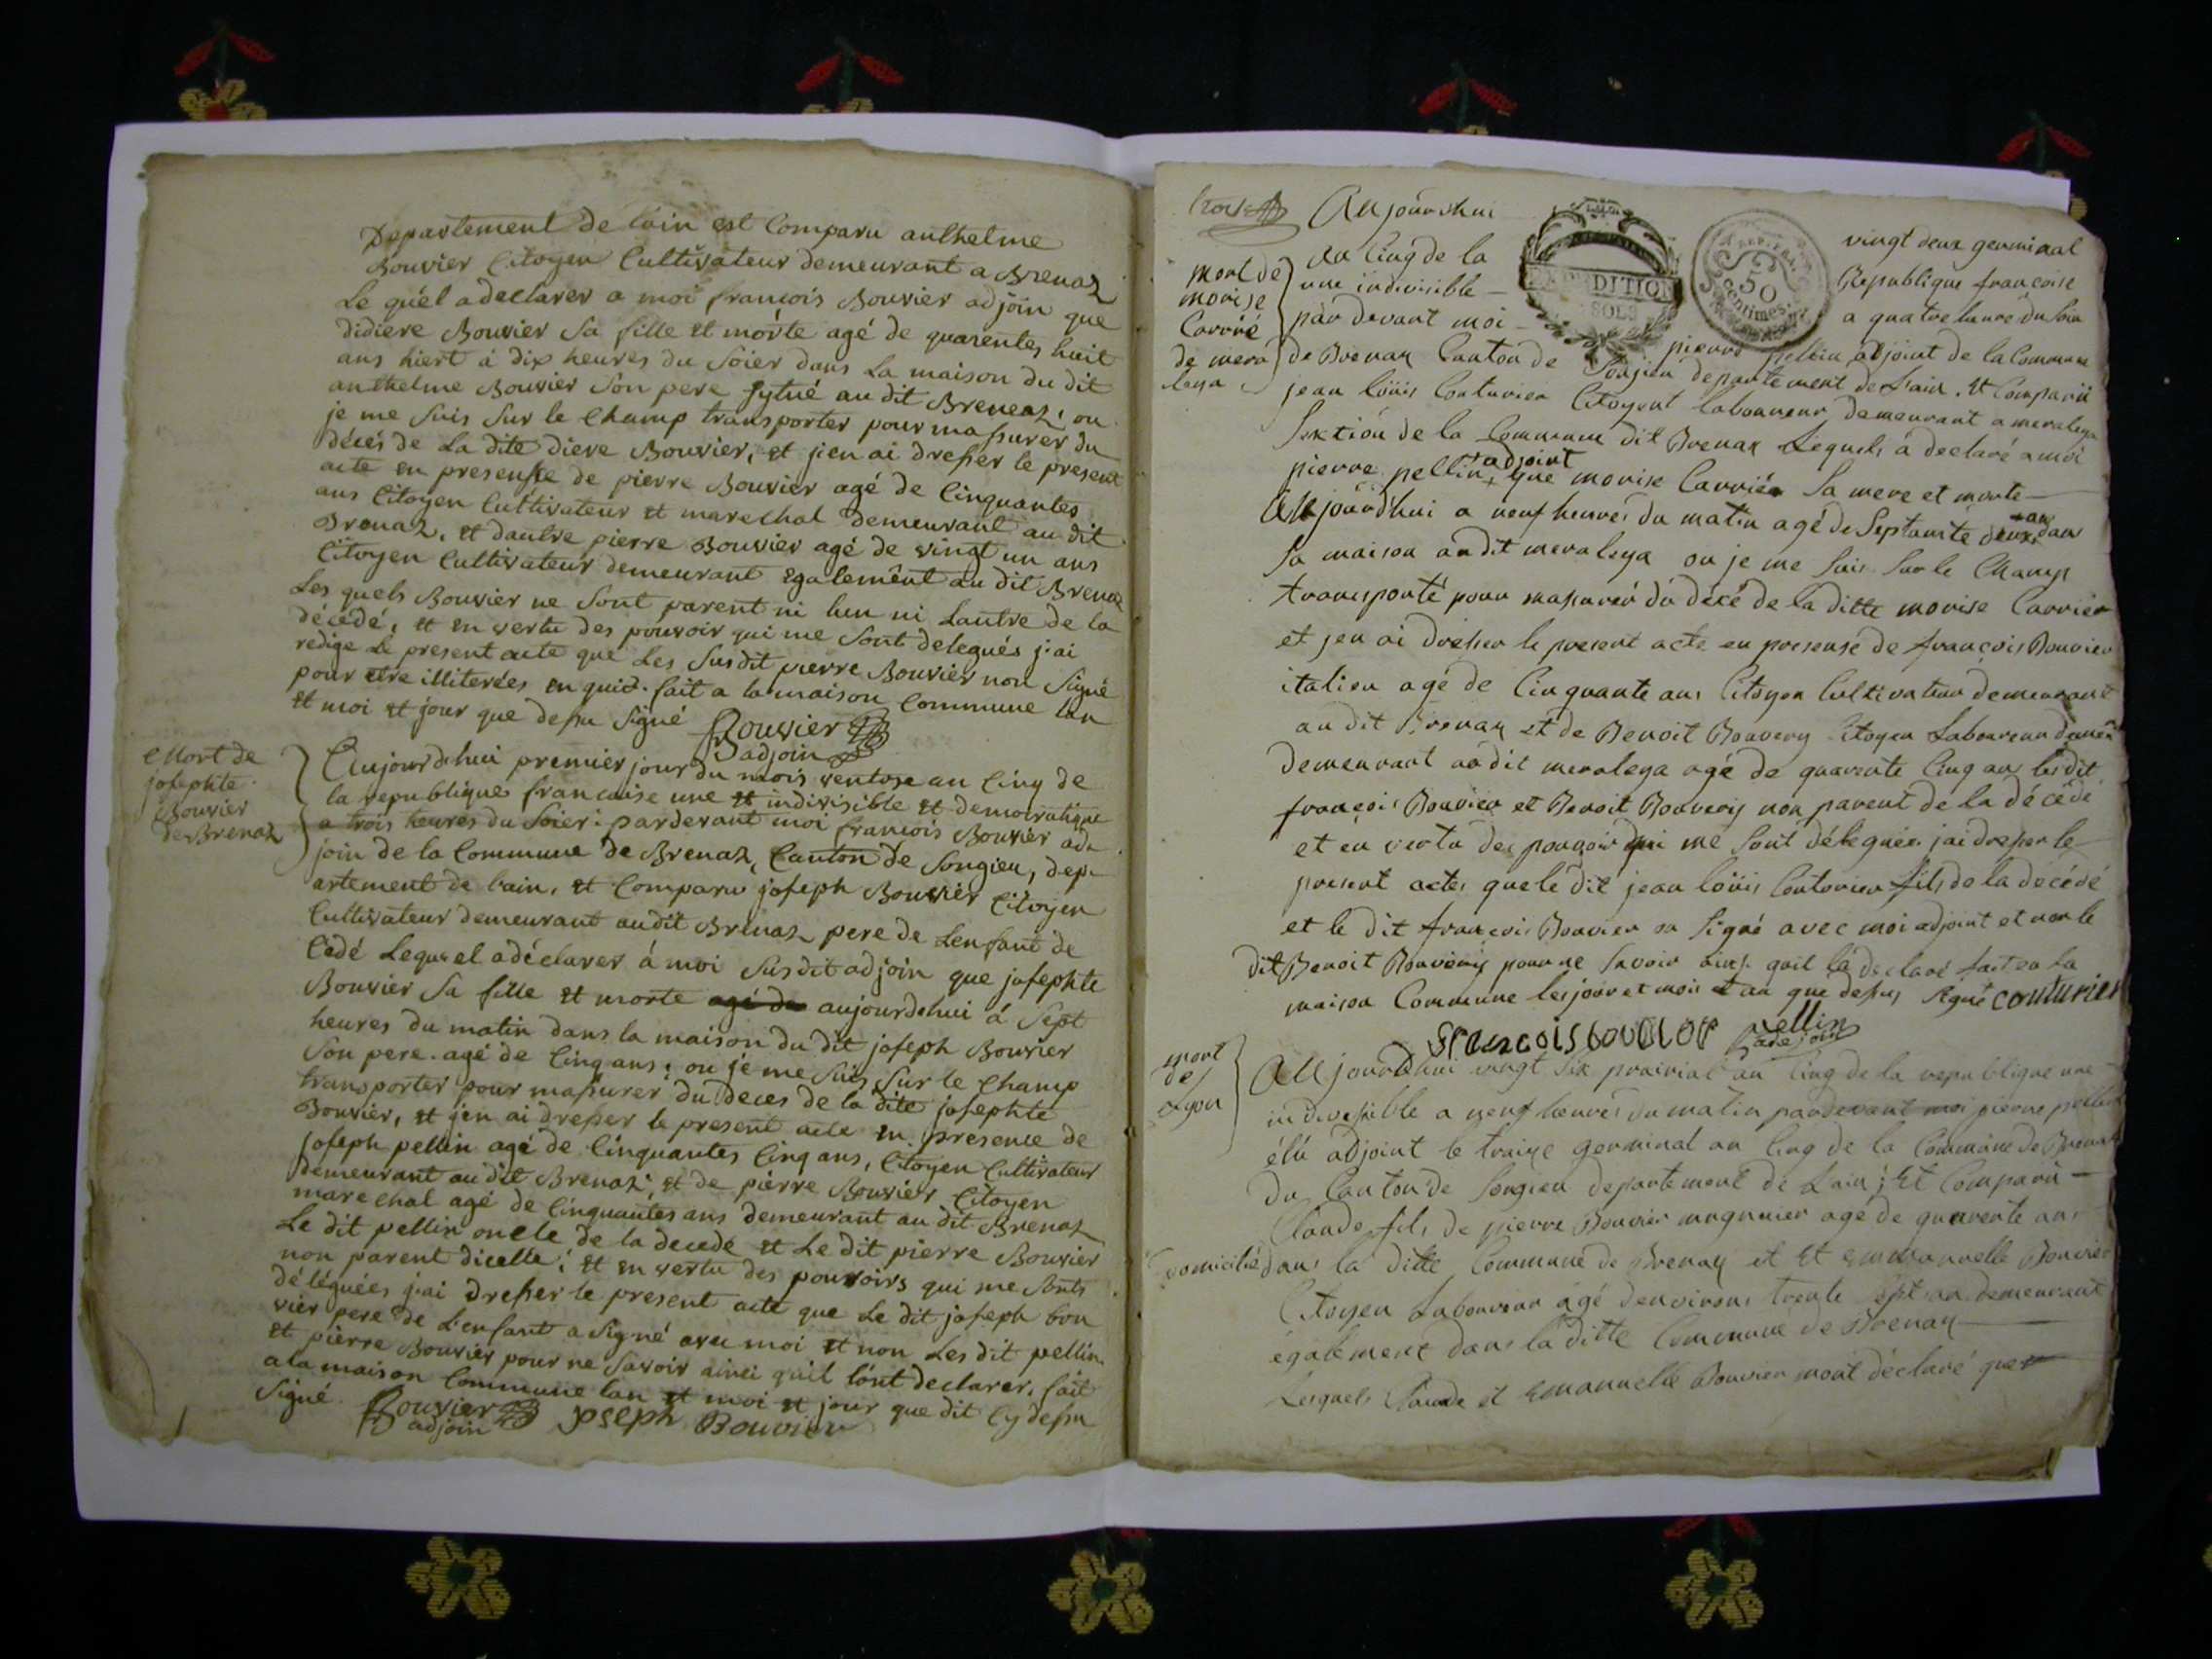 Departement de lain est Comparu anthelme
Bouvier Citoyen Cultivateur demeurant a Brenaz
Le quel a declarer a moi francois Bouvier adjoin que
didiere Bouvier Sa fille et morte agé de quarentes huit
ans hiert á dix heures du Soier dans La maison du dit
anthelme Bouvier Son pere sytué au dit Breneaz, ou
je me Suis Sur le Champ transporter pour massurer du
décés de La dite diere Bouvier, et jien ai dresser le present
acte en presensse de pierre Bouvier agé de Cinquantes
ans Citoyen Cultivateur et marechal demeurant au dit
Brenaz, et dautre pierre Bouvier agé de vingt un ans
Citoyen Cultivateur demeurant Egalemênt au dit Brenaz
Les quels Bouvier ne Sont parent ni lun ni Lautre de la
décédé, et en vertu des pouvoir qui me Sont delegués j'ai
redige Le present acte que Les Susdit pierre Bouvier non Signé
pour etre illiterées en quid. fait a la maison Commune lan
et moi et jour que dessu Signé Bouvier
adjoin
Mort de
josephte
Bouvier
de Brenaz
Aujourdehui premier jour du mois ventose an Cinq de
la republique francaise une et indivisible et democratique
a trois heures du Soier: pardevant moi francois Bouvier ad-
join de la Commune de Brenaz, Canton de Songieu, dep-
artement de lain, et Comparu joseph Bouvier Citoyen
Cultivateur demeurant audit Brenaz pere de Lenfant de
Cedé Lequel a déclarer á moi Susdit adjoin que josephte
Bouvier Sa fille et morte agé de aujourdehui á Sept
heures du matin dans la maison du dit joseph Bouvier
Son pere. agé de Cinq ans; ou je me Suis Sur le Champ
transporter pour massurer du deces de la dite josephte
Bouvier, et jen ai dresser le present acte en presence de
joseph pellin agé de Cinquantes Cinq ans, Citoyen Cultivateur
demeurant au dit Brenaz, et de pierre Bouvier Citoyen
marechal agé de Cinquantes ans demeurant au dit Brenaz
Le dit pellin oncle de la decedé et Le dit pierre Bouvier
non parent dicelle; et en vertu des pouvoirs qui me Sonts
déléguées j'ai dresser le present acte que Le dit joseph bou
vier pere de L'enfant a Signé avec moi et non Les dit pellin
et pierre Bouvier pour ne Savoir ainci quil lónt declarer. fait
a la maison Commune lan et moi et jour que dit Cy dessu
Signé. Bouvier Joseph Bouvier
adjoin
Aujourdhui vingt deux germinal
an Cinq de la Republique francoise
une indivisible a quatre heure du Soir
par devant moi pierre pellin adjoint de la Commune
EXPEDITION
SOLS
50
Centimes
mort de
morise
Carrié
de mera
leya
de Brenaz Canton de Sonjieu departement de Lain. Et Comparü
jean loüis Couturier Citoyent laboureur demeurant a meraleya
Sextión de la Commune dit Brenaz Lequels á declaré a moi
pierre pellin adjoint que morise Carriér Sa mere et morte
Aujourd'hui a neuf heures du matin agé de Septante deux an dans
Sa maison audit meraleya ou je me Suis Sur le Champ
transporté pour massurér dú décé de la ditte morise Carriér
et jen ai dresser le present acte en presensé de françois Bouvier
italien agé de Cinquante ans Citoyen Cultivateur demeurant
au dit Brenaz et de Benoit Bouvery Citoyen Laboureur
demeurant audit meraleya agé de quarente Cinq ans lesdit
françois Bouvier et Benoit Bouvery non parent de la décédé
et en vertu des pouvoir qui me Sont déleguéer jai dresser le
present actes que le dit jean loüis Couturier fils de la decédé
et le dit françois Bouvier on Signé avec moi adjoint et non le
dit Benoit Bouvery pour ne Savoir ainsi quil lá declaré fait en la
maison Commune les jour et mois et an que dessus Signé couturier
francois bouvier pellin
adejoin
mort
de
Lyon
Aujourdhui vingt Six prairial an Cinq de la republique une
indivisible a neuf heures du matin pardevant moi pierre pellin
élú adjoint le traize germinal an Cinq de la Commune de Brenaz
du Canton de Songieu departement de Lain; Et Comparü
Claude fils de pierre Bouvier magnier agé de quarente ans
domicilié dans la ditte Commune de Brenaz et Et emmanuelle Bouvier
Citoyen Laboureur agé denvirons trente Sept an demeurant
également dans la ditte Commune de Brenaz
Lesquels Claude et Emanuelle Bouvier mont déclaré que